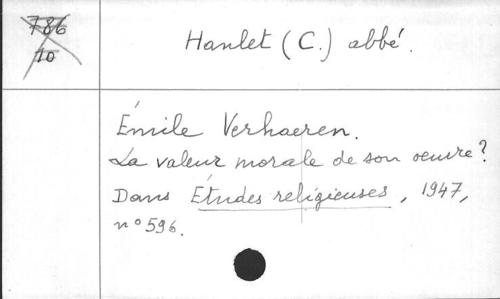 786
10
Hanlet (C.) abbé.
Émile Verhaeren.
La valeur morale de son oeuvre?
Dans Études religieuses, 1947,
n° 596.